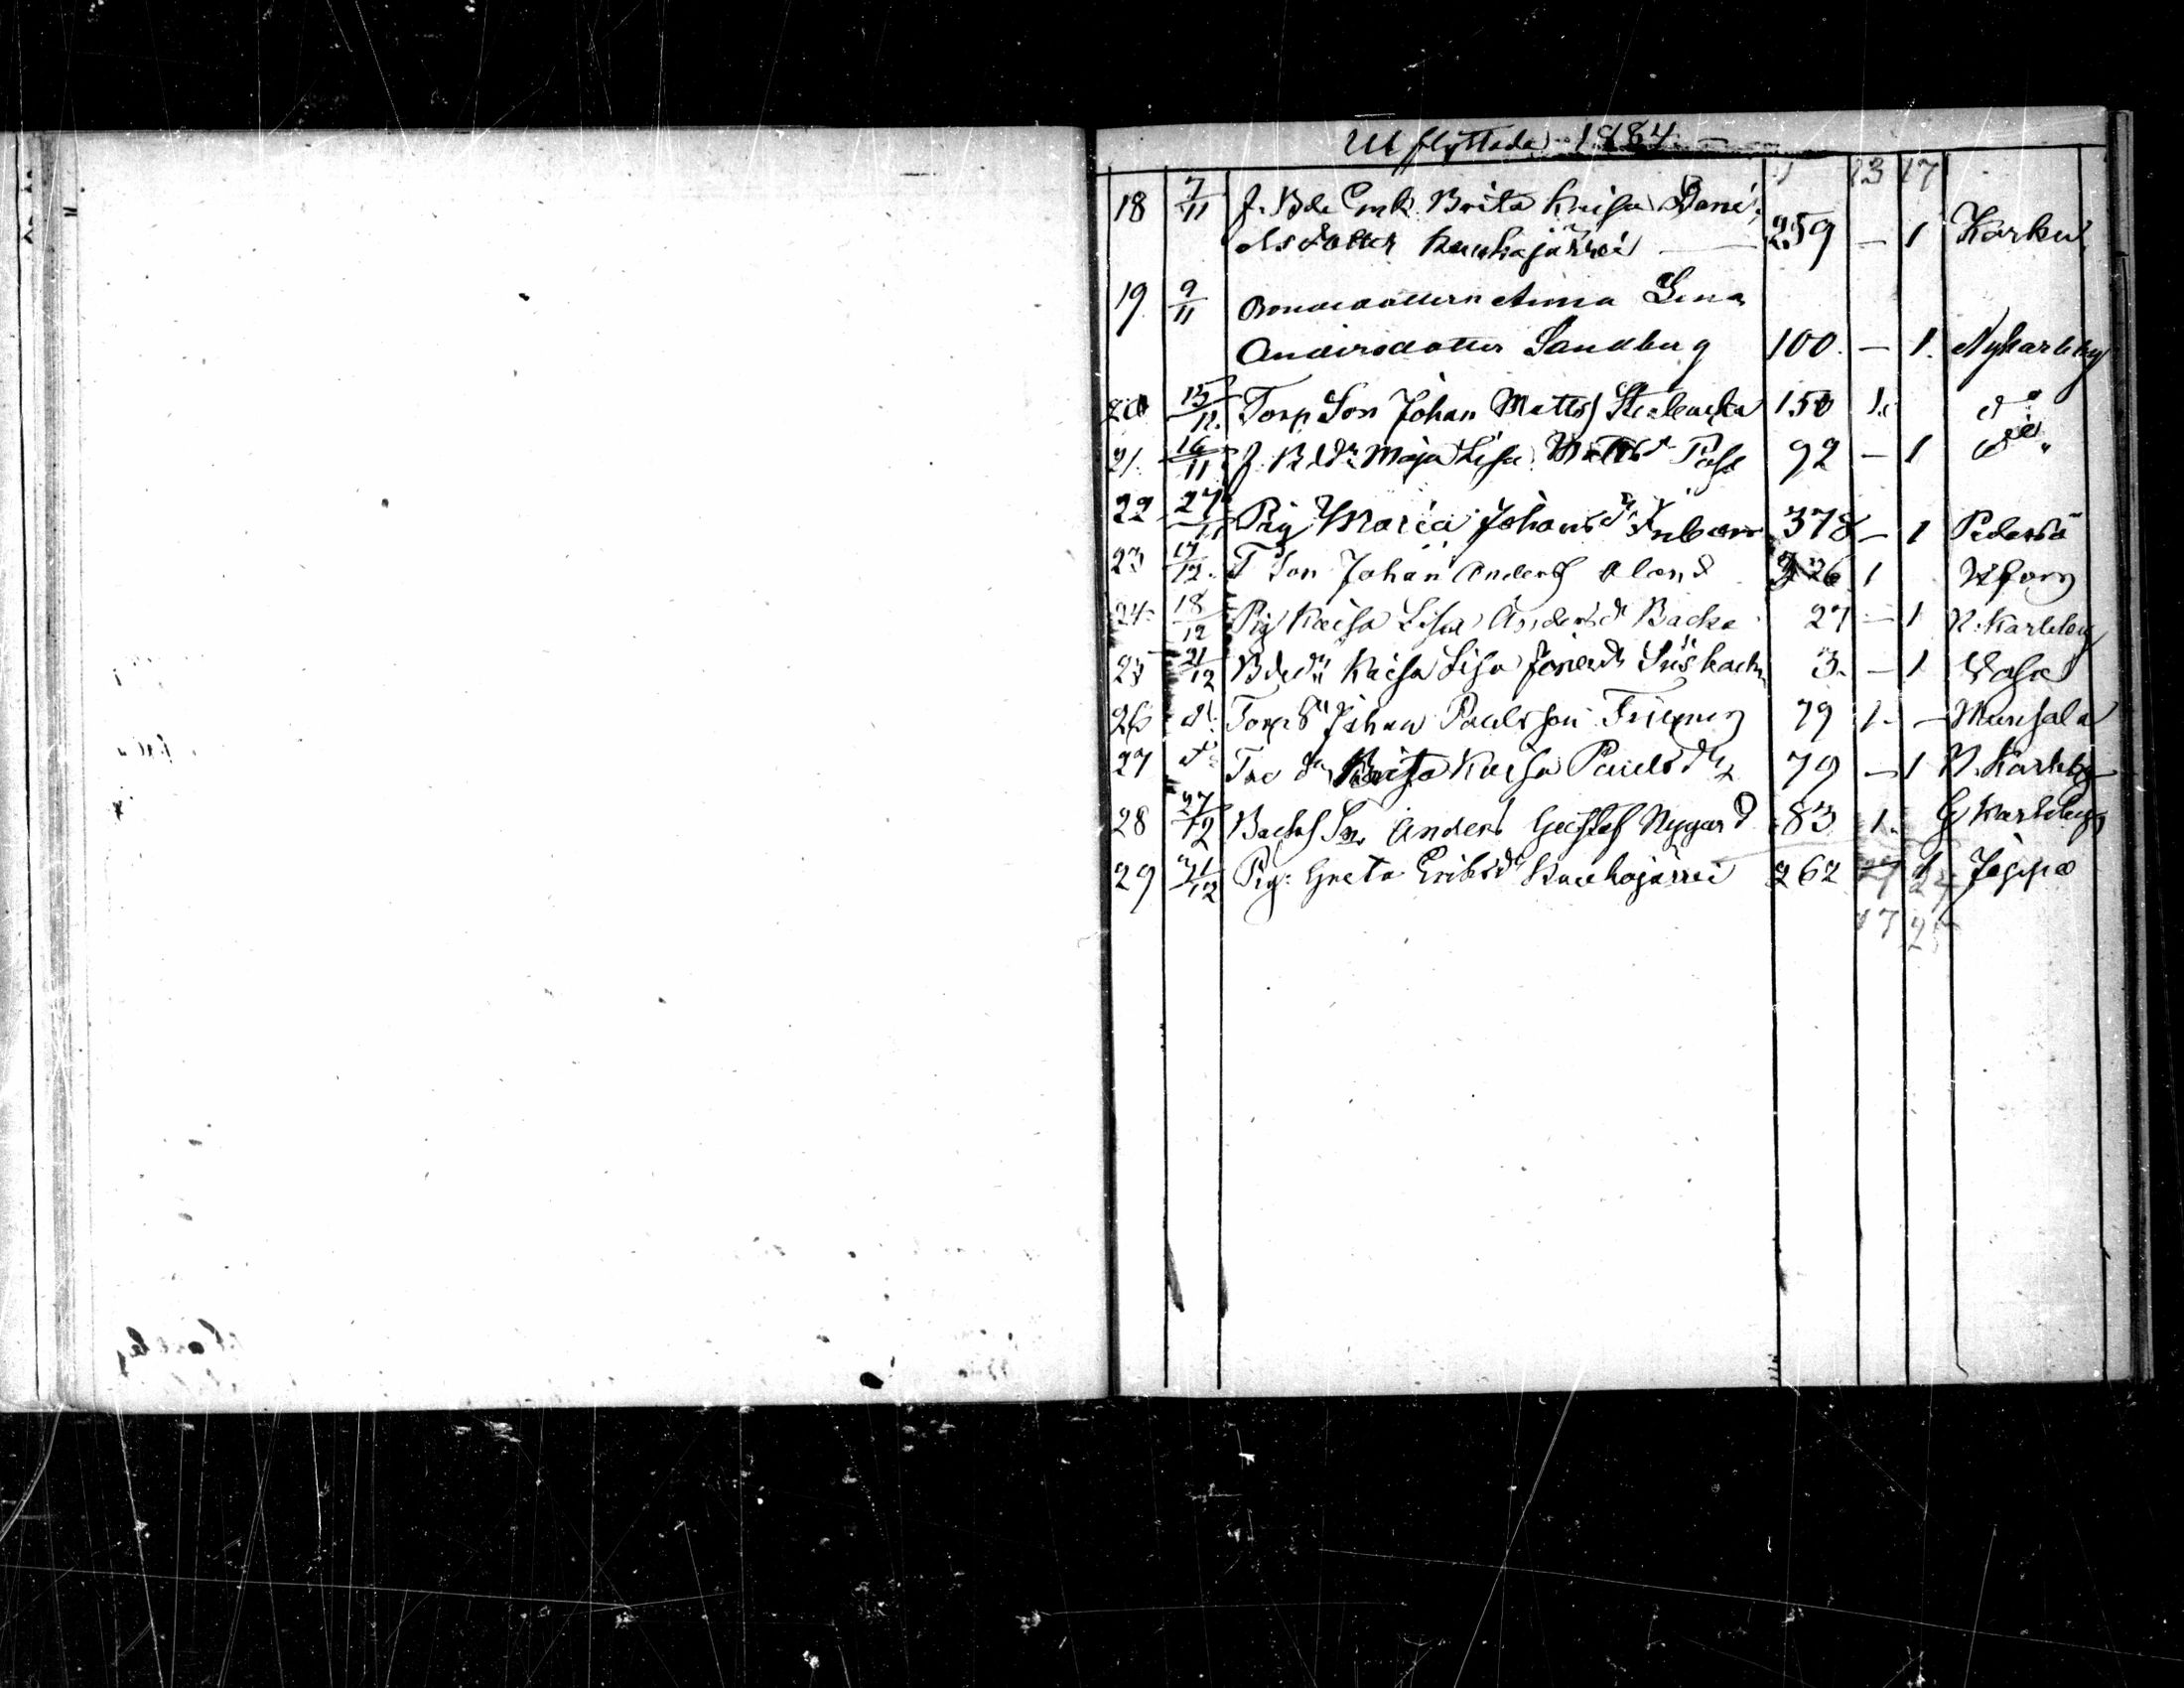 Utflyttade 1884.
13 17
18 7/11 f. Bde Enk. Brita Kaisa Dani-
elsdotter Kauhajärvi — 259 — 1 Karku
19 9/11 Bondedottern Anna Lena
Andersdotter Sandberg 100. — 1. Nykarleby
20 15/11. Torp Son Johan Matts 150 1. do
21. 16/11 f. B dr Maja Lisa Mattsdr 92 — 1 do
22 27/11 Pig Maria Johansdr 378 — 1 Pedersö
23 17/12. T Son Johan Anders Öland 326 1
24 18/12 Pig Kaisa Lisa Andersdr Backa 27 — 1 N. Karleby
25 21/12 Bdedr Kaisa Lisa 3. — 1 Vasa
26 do Torp S Johan Paulsson 79 1. — Munsala
27 do Brita Kaisa Paulsdr 79 — 1 N. Karleby
28 27/12 Backs Sn. Anders Gustaf Nygård 83 1. G Karleby
29 31/12 Pig. Greta Eriksdr Kauhajärvi 262 1 Jeppo
17 25